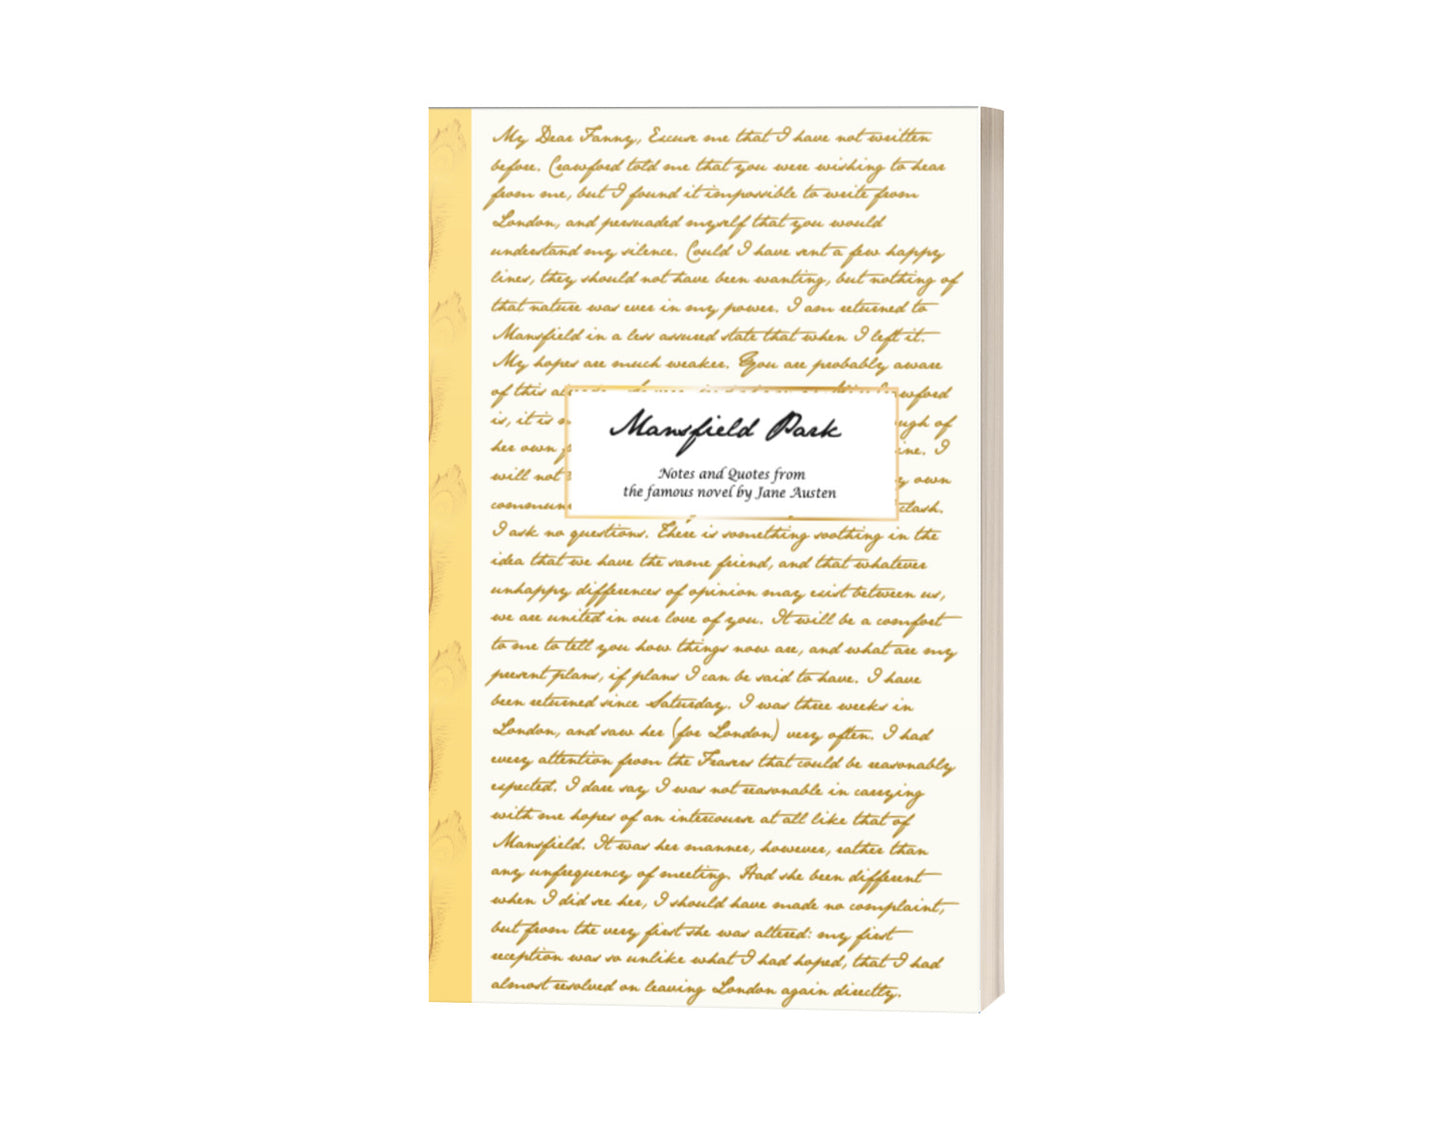 My Dear Fanny, Excuse me that I have not written
before. Crawford told me that you were wishing to hear
from me, but I found it impossible to write from
London, and persuaded myself that you would
understand my silence. Could I have sent a few happy
lines, they should not have been wanting, but nothing of
that nature was ever in my power. I am returned to
Mansfield in a less assured state that when I left it.
My hopes are much weaker. You are probably aware
of this
is, it is
her own
will not
I ask no questions. There is something soothing in the
idea that we have the same friend, and that whatever
unhappy differences of opinion may exist between us,
we are united in our love of you. It will be a comfort
to me to tell you how things now are, and what are my
present plans, if plans I can be said to have. I have
been returned since Saturday. I was three weeks in
London, and saw her (for London) very often. I had
every attention from the Frasers that could be reasonably
expected. I dare say I was not reasonable in carrying
with me hopes of an intercourse at all like that of
Mansfield. It was her manner, however, rather than
any unfrequency of meeting. Had she been different
when I did see her, I should have made no complaint,
but from the very first she was altered: my first
reception was so unlike what I had hoped, that I had
almost resolved on leaving London again directly.
Mansfield Park
Notes and Quotes from
the famous novel by Jane Austen
own
clash.